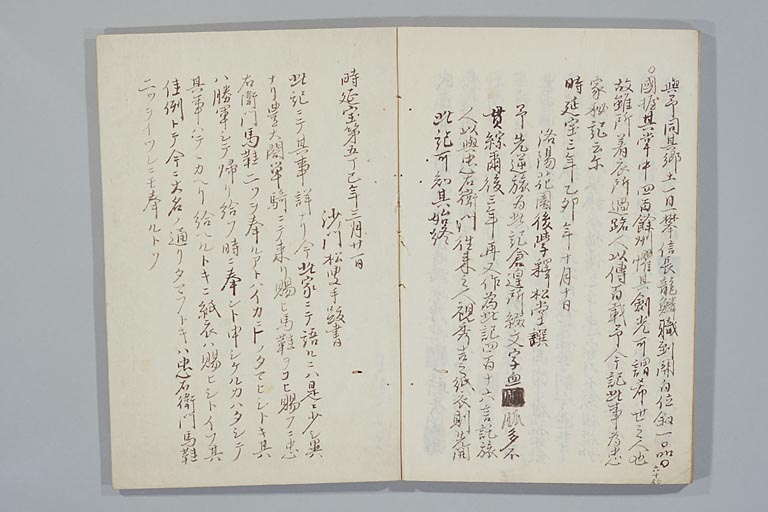 與予同其郷土一日攀信長龍鱗職到関白位叙一品
國握其掌中四百餘州懼其劍光可謂希世之人也
故雖所著衣所過路人以傳百載予今記此事為忠
家秘記云尓
時延宝三年乙卯年十月十日
洛陽花園後学釋松堂譔
予先逆旅為此記倉皇所綴文字血脈多不
貫綜爾後三年再又作為此記四百十六言記旅
人以與忠右衛門往来之人視秀吉之紙衣則先開
此記可知其始終
時延宝第五丁巳年三月廿一日
沙門松叟手跋書
此記ニテ其事詳ナリ今此家ニテ語ルニハ是ト少シ異
ナリ豊太閤単騎ニテ来リ賜ヒ馬鞋ヲコヒ賜フニ忠
右衛門馬鞋二ツヲ奉ルアトハイカニトノタマヒシトキ其
ハ勝軍シテ帰リ給フ時ニ奉ント申シケルカハタシテ
其事ハテカヘリ給ヘルトキニ紙衣ハ賜ヒシトイフ其
佳例トテ今ニ大名ノ通リタマフトキハ忠右衛門馬鞋
二ツライツレニモ奉ルトソ